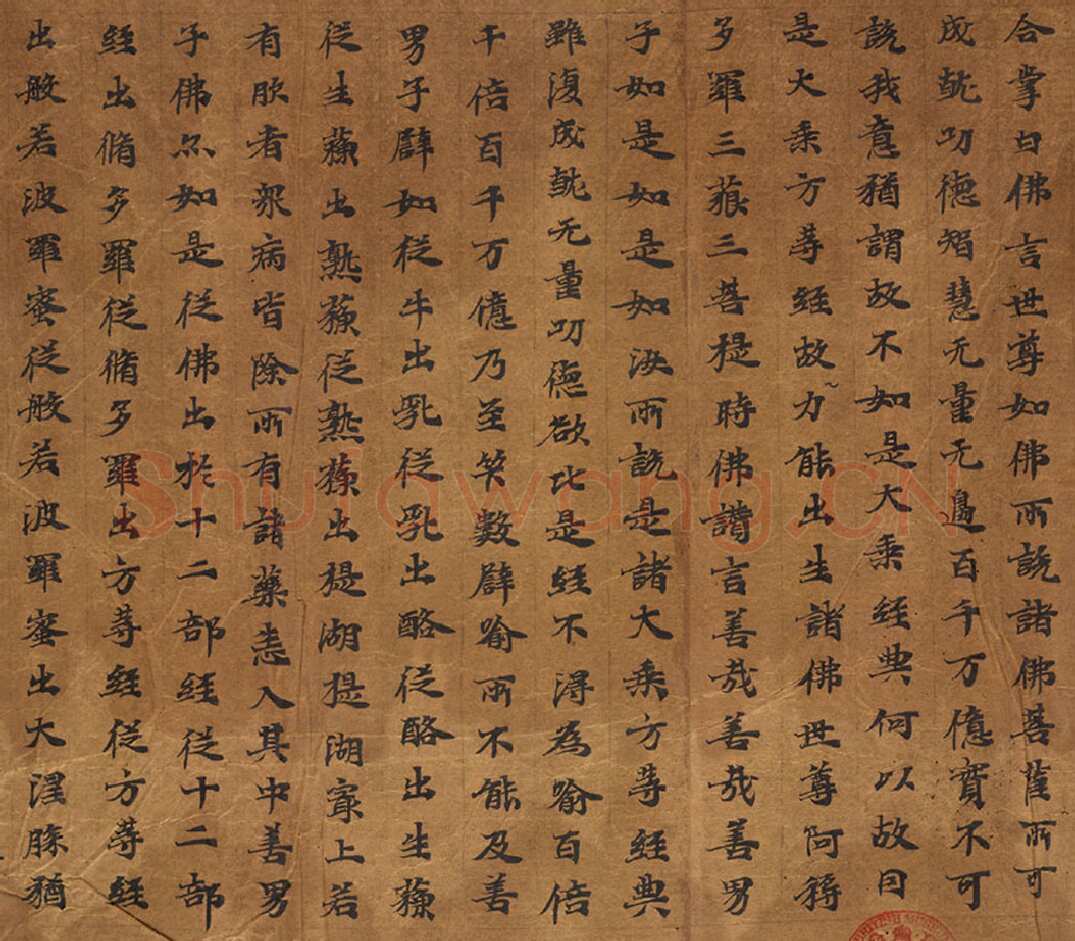 合掌白佛言世尊如佛所說諸佛菩薩所可
成就功德智慧无量无邊百千万億實不可
說我意猶謂故不如是大乘經典何以故因
是大乘方等經故力能出生諸佛世尊阿耨
多羅三藐三菩提時佛讚言善哉善哉善男
子如是如是如汝所說是諸大乘方等經典
雖復成就无量功德欲比是經不得為喻百倍
千倍百千万億乃至筭數辟喻所不能及善
男子辟如從牛出乳從乳出酪從酪出生蘇
從生蘇出熟蘇從熟蘇出提湖提湖寂上若
有服者眾病皆除所有諸藥悉入其中善男
子佛尒如是從佛出於十二部經從十二部
經出脩多羅從脩多羅出方等經從方等經
出般若波羅蜜從般若波羅蜜出大涅槃猶
Shufawang.CN